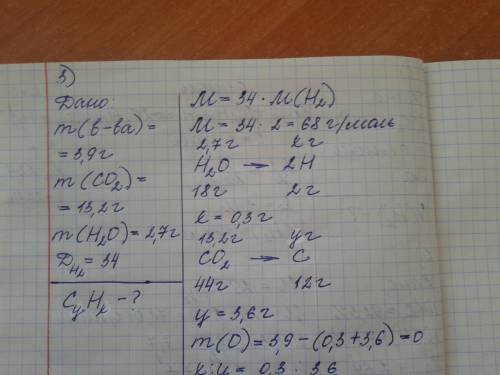 3)
Дано:
m(в-ва) =
= 3,9г
m(CO₂) =
= 13,2г
m(H₂O) = 2,7г
D_H₂ = 34
CyHx - ?
M = 34 · M(H₂)
M = 34 · 2 = 68 г/моль
2,7г xг
H₂O → 2H
18г 2г
x = 0,3г
13,2г yг
CO₂ → C
44г 12г
y = 3,6г
m(O) = 3,9 - (0,3+3,6) = 0
x:y = 0,3 : 3,6